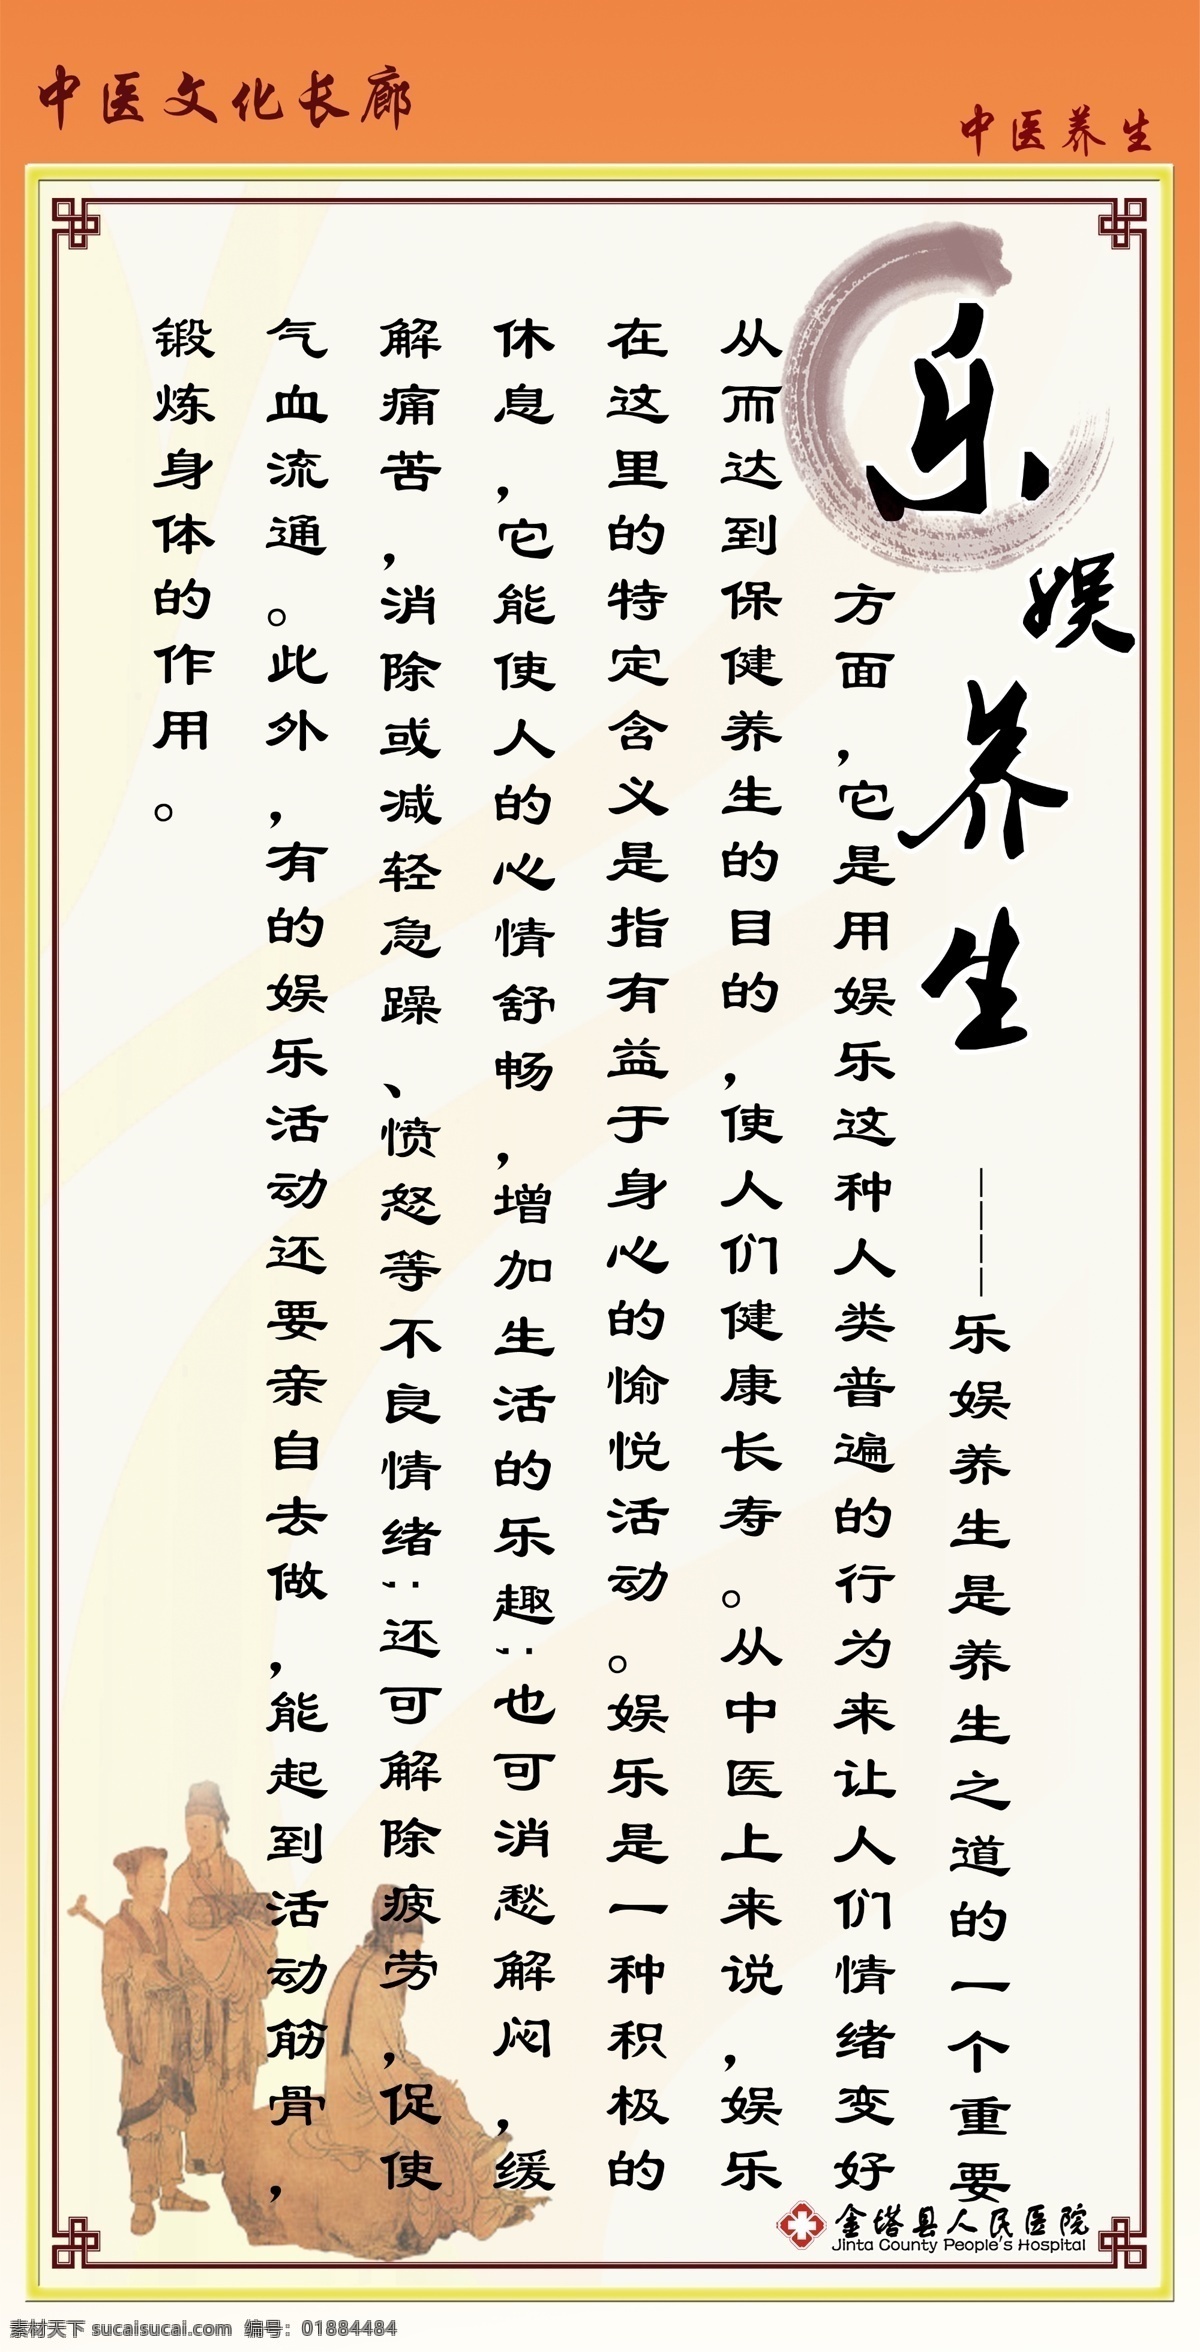 中医文化长廊
中医养生
乐娱养生
————乐娱养生是养生之道的一个重要
方面，它是用娱乐这种人类普遍的行为来让人们情绪变好
从而达到保健养生的目的，使人们健康长寿。从中医上来说，娱乐
在这里的特定含义是指有益于身心的愉悦活动。娱乐是一种积极的
休息，它能使人的心情舒畅，增加生活的乐趣；也可消愁解闷，缓
解痛苦，消除或减轻急躁、愤怒等不良情绪；还可解除疲劳，促使
气血流通。此外，有的娱乐活动还要亲自去做，能起到活动筋骨，
锻炼身体的作用。
金塔县人民医院
Jinta County People's Hospital
素材天下 sucaisucai.com 编号：01884484